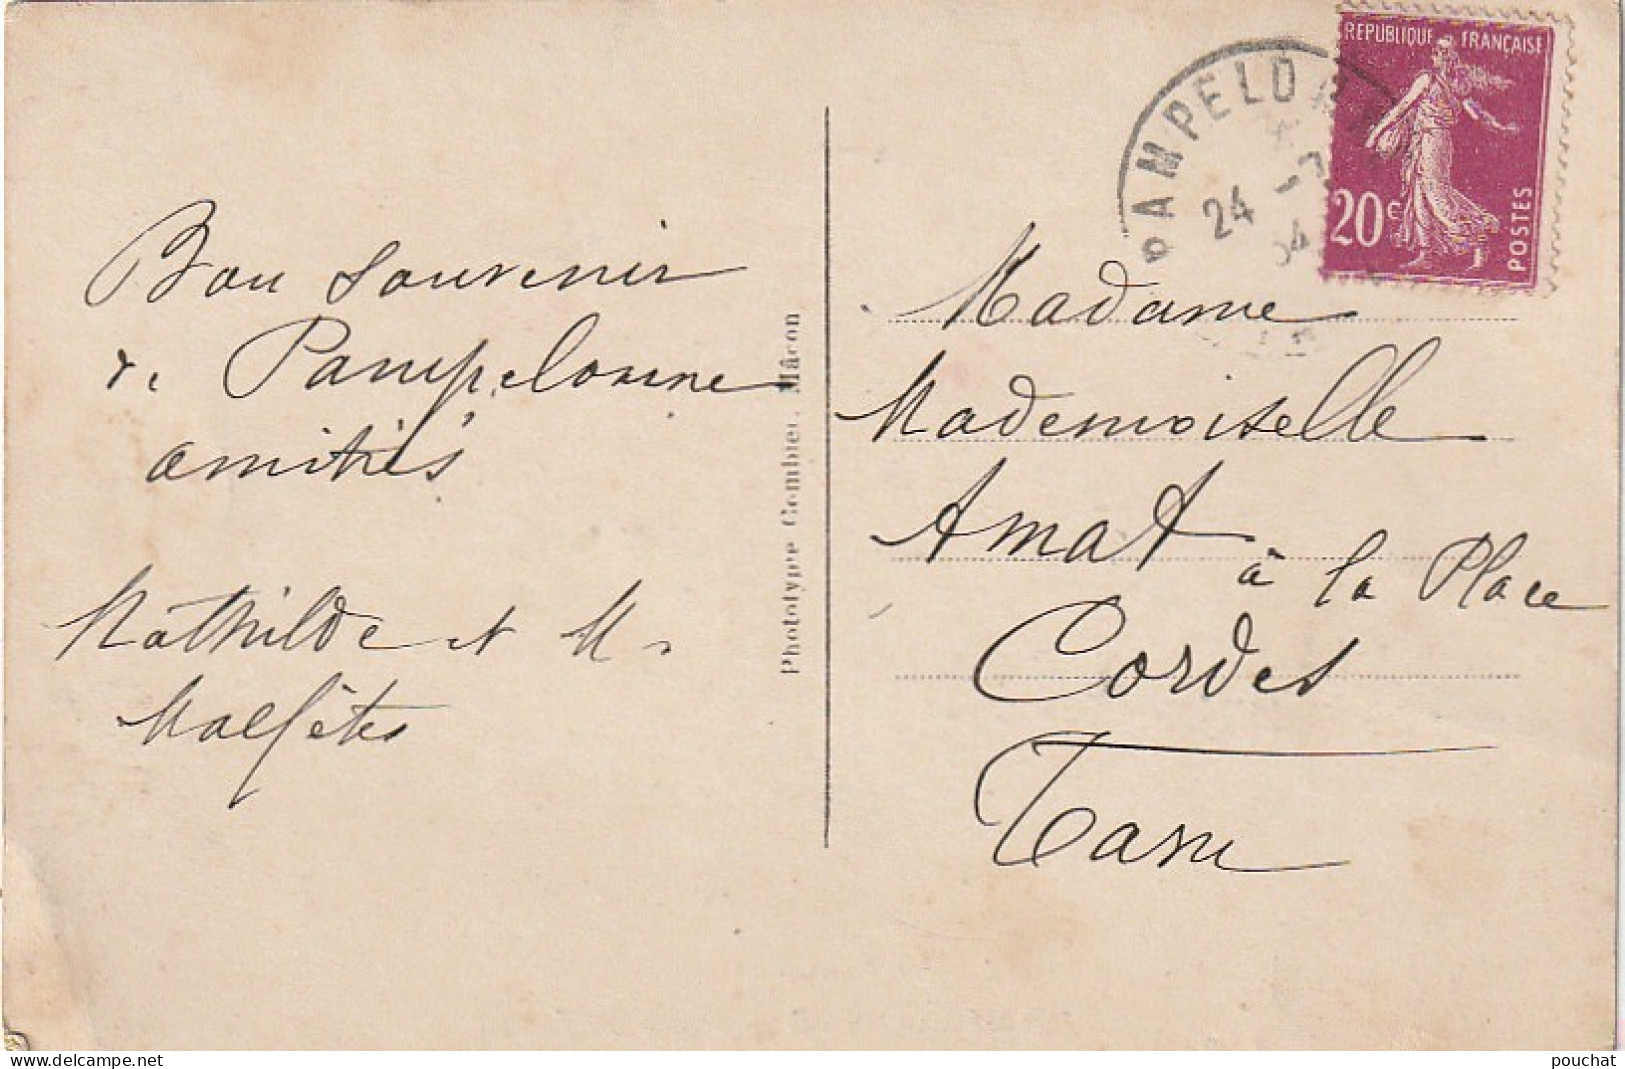 Bon souvenir
de Pampelonne
amitiés
Mathilde et M
Malfêtes
Phototypie Combier, Mâcon
PAMPELONNE
24
34
REPUBLIQUE FRANÇAISE
20c
POSTES
Madame
Mademoiselle
Amat
à la Place
Cordes
Tarn
delcampe.net
pouchat